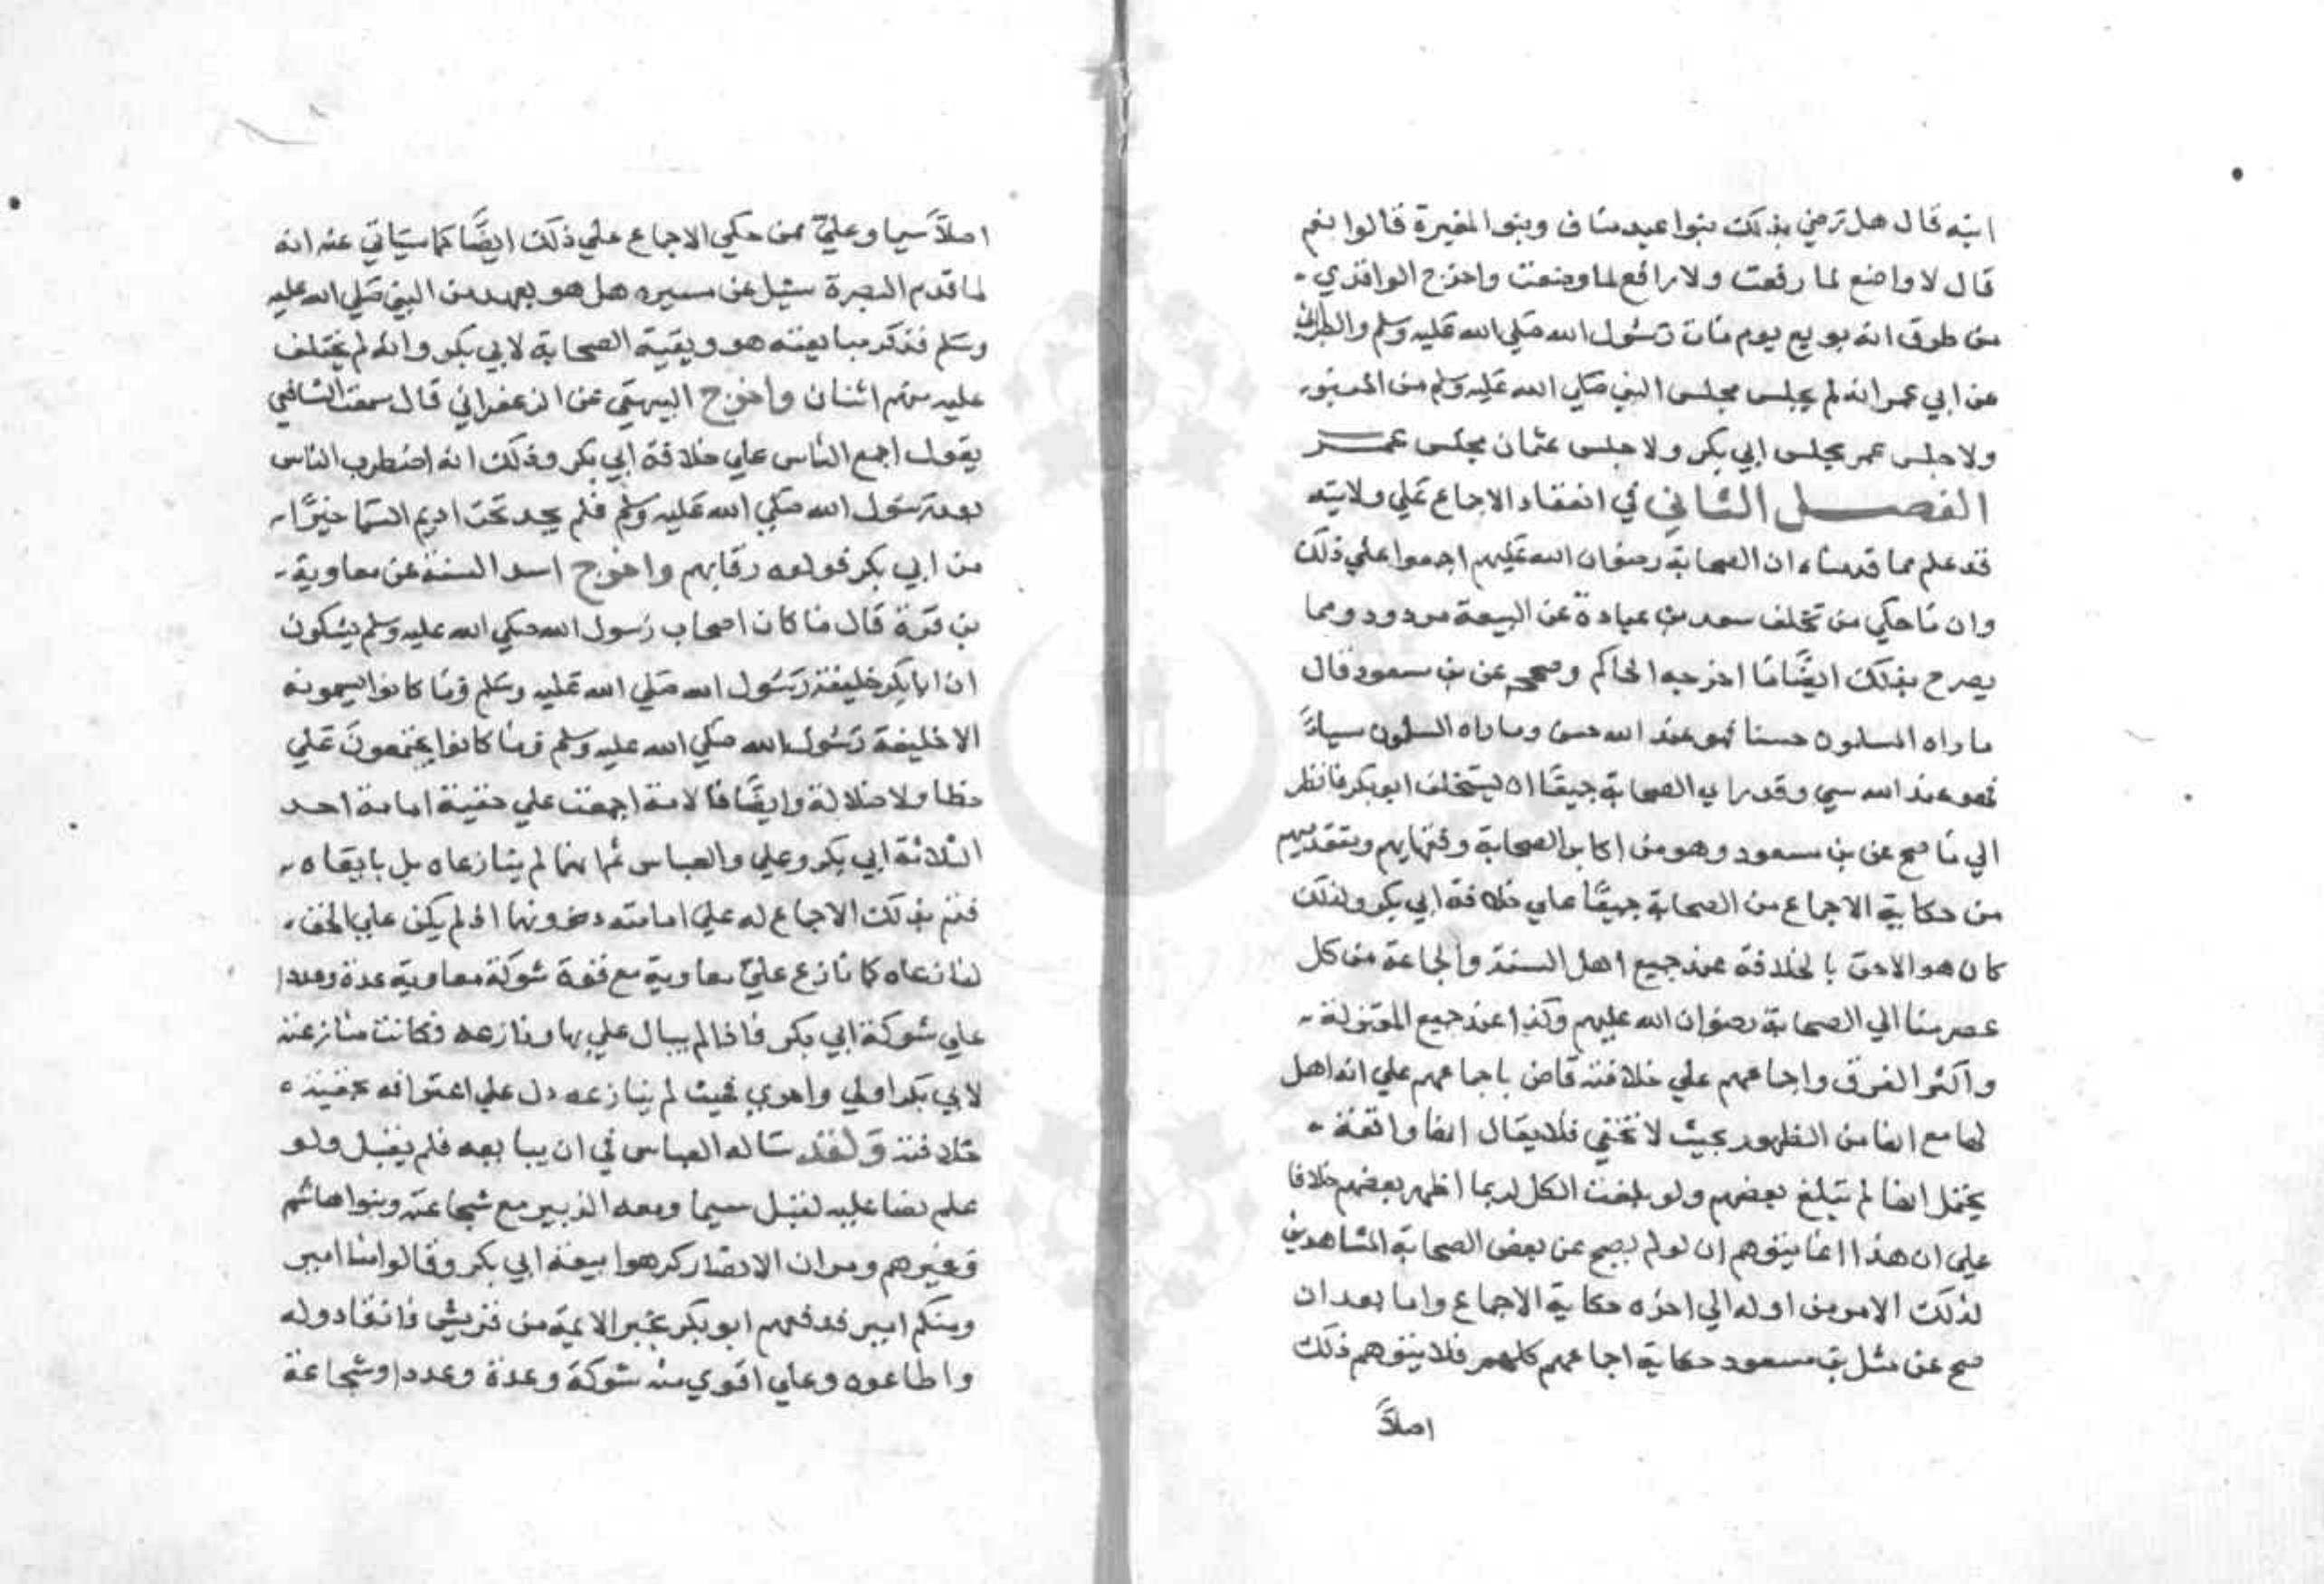 ابنه قال هل ترضي بذلك بنوا عبد مناف وبنوا المغيرة قالوا نعم
قال لا واضع لما رفعت ولا رافع لما وضعت واخرج الواقدي
من طرق انه بويع يوم مات رسول الله صلي الله عليه وسلم والطبراني
عن ابي عمر انه لم يجلس مجلس النبي صلي الله عليه وسلم من المنبر
ولا جلس عمر مجلس ابي بكر ولا جلس عثمان مجلس عمر
الفصل الثاني في انعقاد الاجماع علي ولايته
قد علم مما قدمناه ان الصحابة رضوان الله عليهم اجمعوا علي ذلك
وان ما حكي من تخلف سعد بن عبادة عن البيعة مردود ومما
يصرح بذلك ايضًا ما اخرجه الحاكم وصححه عن بن مسعود قال
ما راه المسلمون حسنا فهو عند الله حسن وما راه المسلمون سياءً
فهو عند الله سيي وقد راي الصحابة جميعًا ان يستخلف ابو بكر فانظر
الي ما صح عن بن مسعود وهو من اكابر الصحابة وفقهايهم ومتقدميهم
من حكاية الاجماع من الصحابة جميعًا علي خلافة ابي بكر ولذلك
كان هو الاحق بالخلافة عند جميع اهل السنة والجاعة من كل
عصر منا الي الصحابة رضوان الله عليهم وكذا عند جميع المعتزلة
واكثر الفرق واجماعهم علي خلافته قاض باجماعهم علي انه اهل
لها مع انها من الظهور بحيث لا تخفي فلا يقال انها واقعة
يحتمل انها لم تبلغ بعضهم ولو بلغت الكل لربما اظهر بعضهم خلافا
علي ان هذا انما يتوهم ان لو لم يصح عن بعض الصحابة المشاهدين
لذلك الامر من اوله الي اخره حكاية الاجماع واما بعد ان
صح عن مثل بن مسعود حكاية اجماعهم كلهم فلا يتوهم ذلك
اصلاً
اصلاً سيما وعليّ ممن حكي الاجماع علي ذلك ايضًا كما سياتي عنه انه
لما قدم البصرة سئل عن مسيره هل هو بعهد من النبي صلي الله عليه
وسلم فذكر مبايعته هو وبقية الصحابة لابي بكر وانه لم يختلف
عليه منهم اثنان واخرج البيهقي عن الزعفراني قال سمعت الشافعي
يقول اجمع الناس علي خلافة ابي بكر وذلك انه اضطرب الناس
بعد رسول الله صلي الله عليه وسلم فلم يجد تحت اديم السما خيرًا
من ابي بكر فولوه رقابهم واخرج اسد السنة عن معاوية
بن قرة قال ما كان اصحاب رسول الله صلي الله عليه وسلم يشكون
ان ابا بكر خليفة رسول الله صلي الله عليه وسلم وما كانوا يسمونه
الا خليفة رسول الله صلي الله عليه وسلم وما كانوا يجتمعون علي
خطا ولا ضلالة وايضًا فالامة اجمعت علي حقية امامة احد
الثلاثة ابي بكر وعلي والعباس ثم انهما لم ينازعاه بل بايعاه
فتم بذلك الاجماع له علي امامته دونهما اذ لم يكن علي الحق
لنازعاه كما نازع عليّ معاوية مع قوة شوكة معاوية عدة وعددا
علي شوكة ابي بكر فاذا لم يبال علي بها ونازعه فكانت منازعته
لابي بكر اولي واحري فحيث لم ينازعه دل علي اعترافه بحقية
خلافته ولقد ساله العباس في ان يبايعه فلم يقبل ولو
علم نصا عليه لقبل سيما ومعه الزبير مع شجاعته وبنوا هاشم
وغيرهم ومر ان الانصار كرهوا بيعة ابي بكر وقالوا منا امير
ومنكم امير فدفعهم ابو بكر بخبر الايمة من قريش فانقادوا له
واطاعوه وعلي اقوي منه شوكة وعدة وعددا وشجاعة